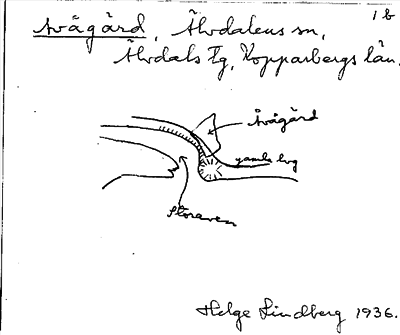 1 b
Åvågård, Älvdalens sn,
Älvdals Tg, Kopparbergs län.
Åvågård
gamla bvg
Storaven
Helge Lindberg 1936.